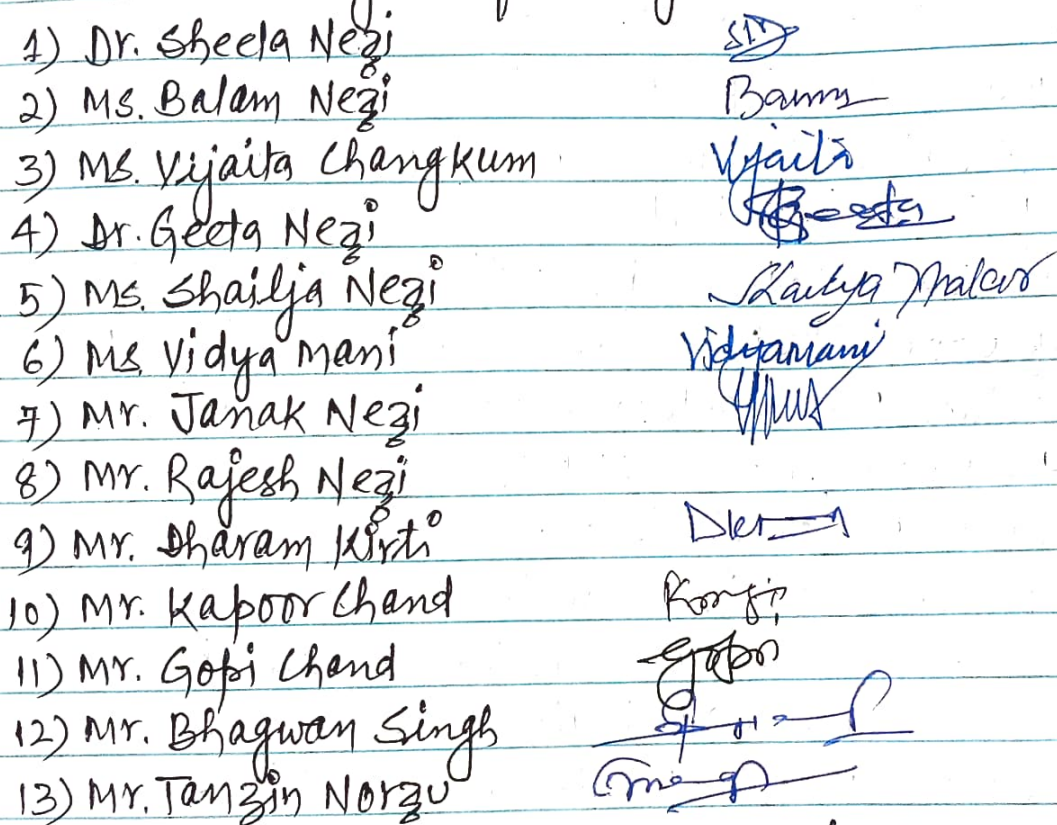 1) Dr. Sheela Negi
2) Ms. Balam Negi
3) Ms. Vijaita Changkum Vijaita
4) Dr. Geeta Negi Geeta
5) Ms. Shailja Negi
6) Ms. Vidya Mani Vidyamani
7) Mr. Janak Negi
8) Mr. Rajesh Negi
9) Mr. Dharam Kirti
10) Mr. Kapoor Chand
11) Mr. Gopi Chand
12) Mr. Bhagwan Singh
13) Mr. Tanzin Norzu